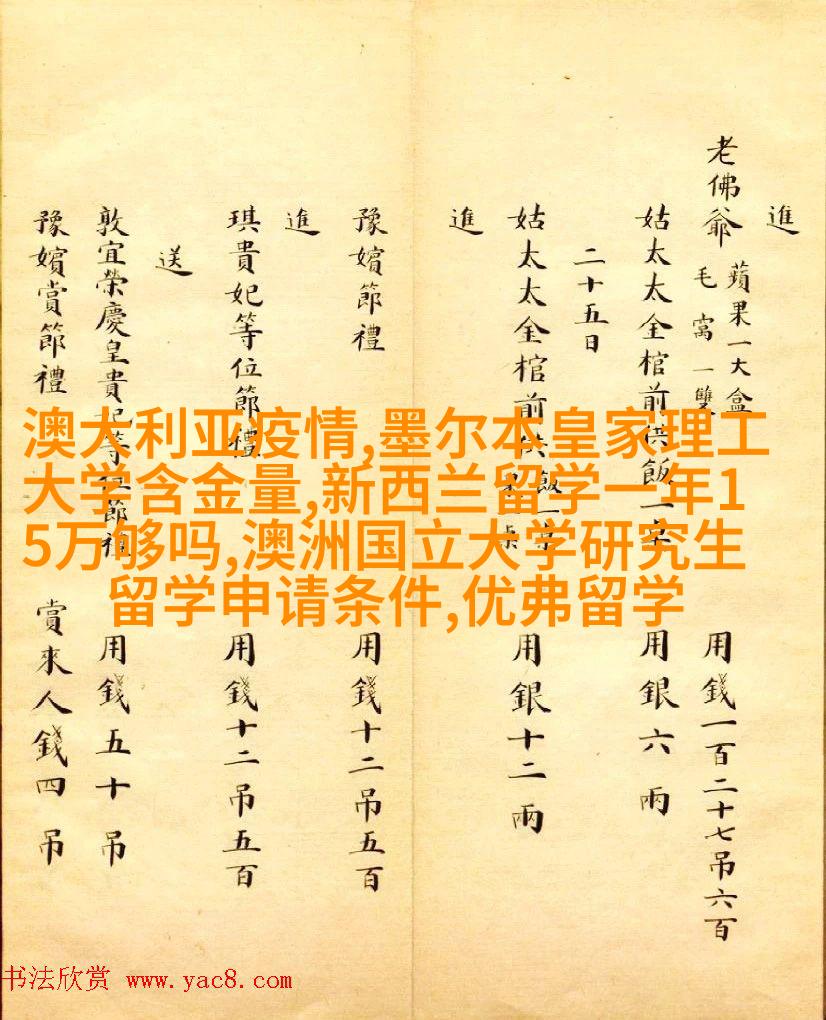 進
老佛爺
蘋果一大盒
毛窩一雙
用錢一百二十七吊六百
姑太太金棺前供飯一桌
用銀六兩
二十五日
進
姑太太金棺前供
飯一桌
用銀十二兩
豫嬪節禮
用錢十二吊五百
進
琪貴妃等位節禮
用錢十二吊五百
送
敦宜榮慶皇貴妃等位節禮
用錢五十吊
豫嬪賞節禮
賞來人錢四吊
澳大利亚疫情,墨尔本皇家理工
大学含金量,新西兰留学一年1
5万够吗,澳洲国立大学研究生
留学申请条件,优弗留学
书法欣赏 www.yac8.com